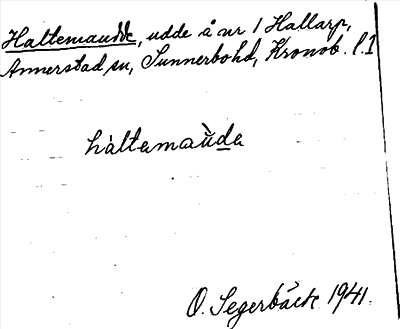 Haltemaudde, udde å nr 1 Hallarp,
Annerstad sn, Sunnerbohd, Kronob. l.
håltamaùda
O. Segerbäck 1941.